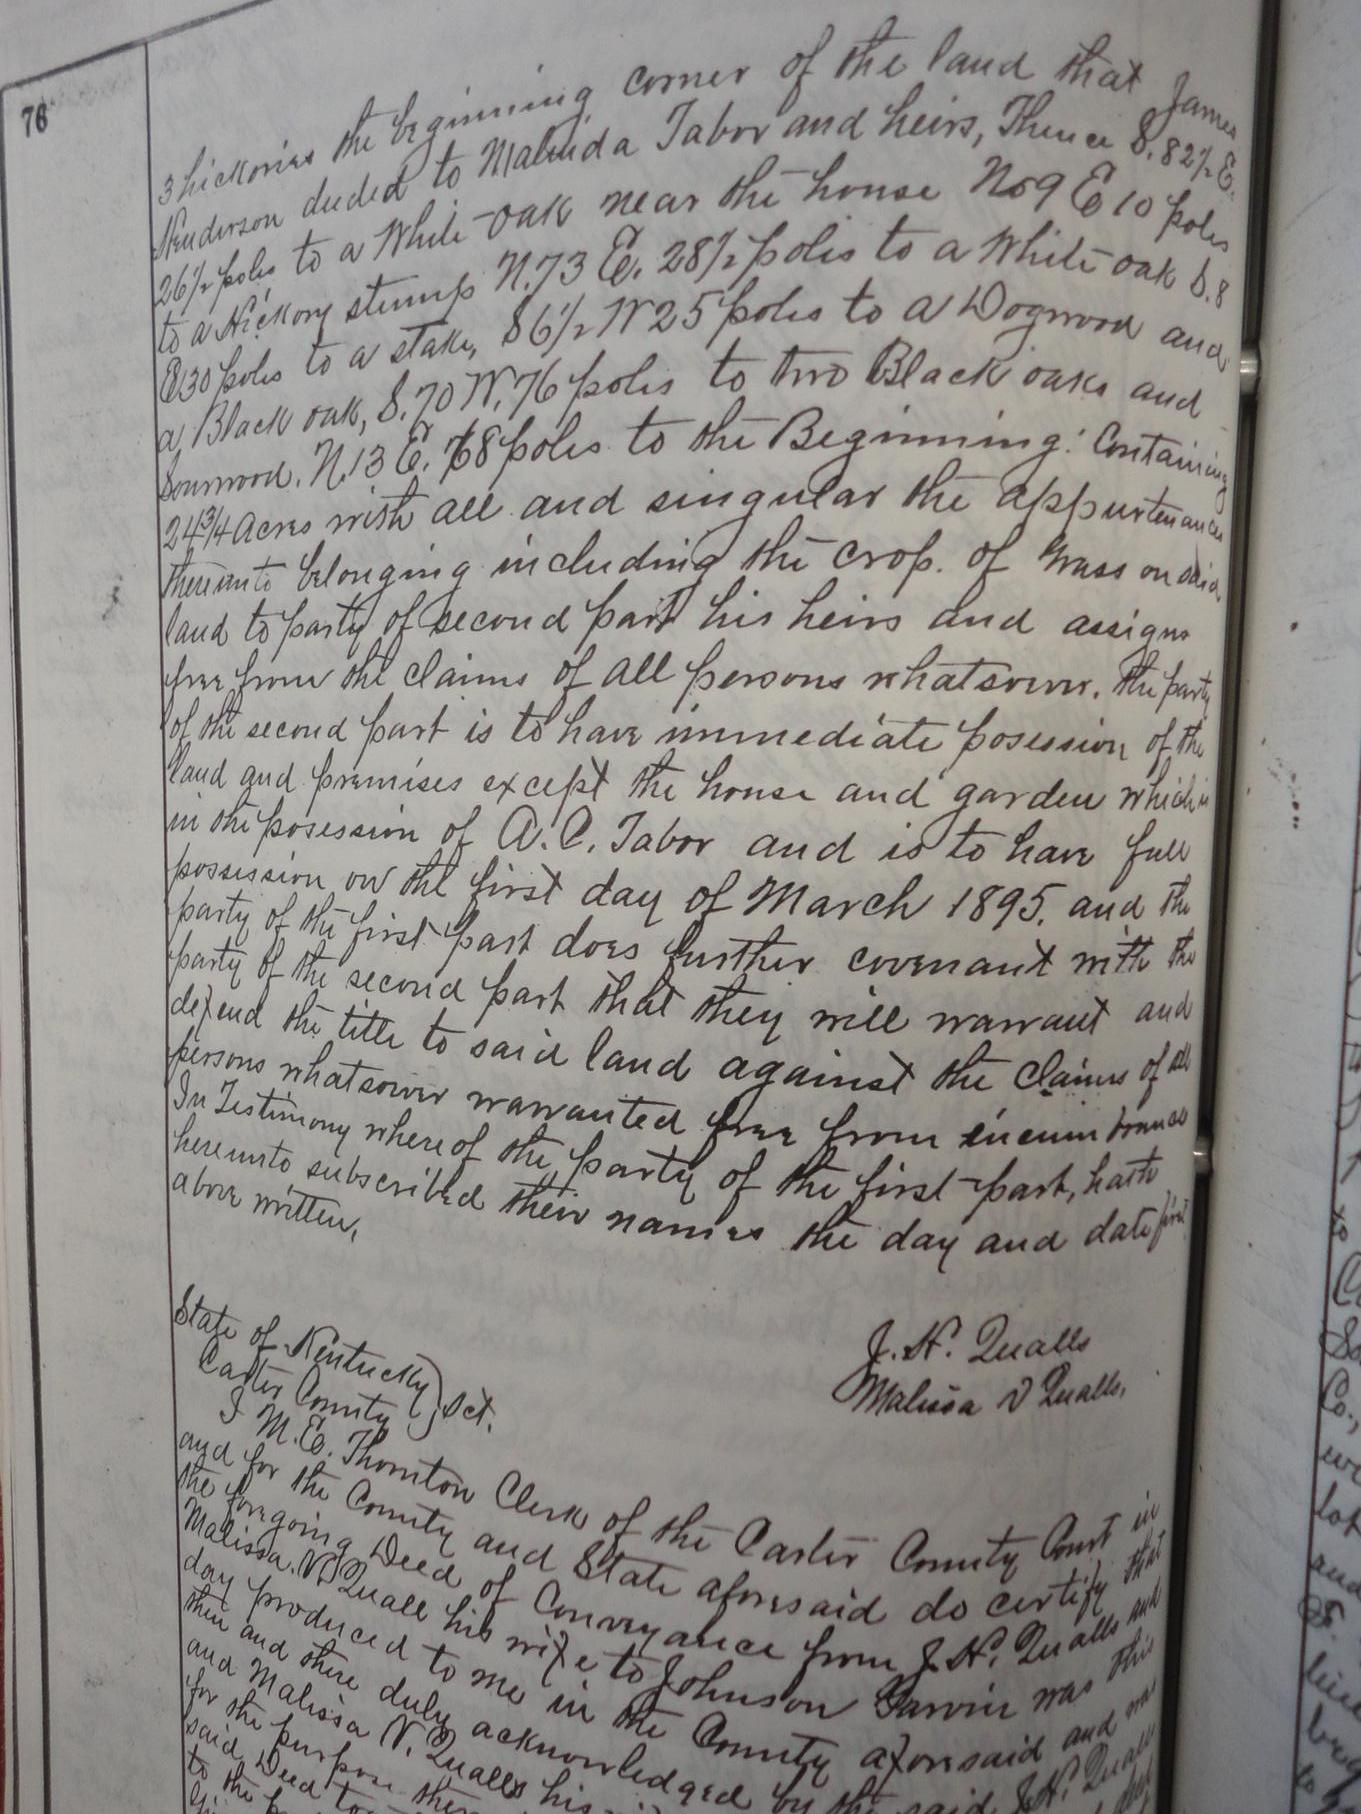 76
3 hickories the beginning corner of the land that James
Henderson deeded to Malinda Tabor and heirs, Thence S. 82½ E.
26½ poles to a White-oak near the house No 9 E 10 poles
to a Hickory stump N. 73 E. 28½ poles to a White oak S. 8
E 130 poles to a stake, S 6½ W 25 poles to a Dogwood and
a Black oak, S. 70 W. 76 poles to two Black oaks and
Sourwood. N. 13 E. 68 poles to the Beginning: Containing
24¾ Acres with all and singular the appurtenances
thereunto belonging including the crop. of grass on said
land to party of second part his heirs and assigns
free from the claims of all persons whatsover. the party
of the second part is to have immediate posession of the
land and premises except the house and garden which is
in the posession of A. C. Tabor and is to have full
possession on the first day of March 1895. and the
party of the first part does further covenant with the
party of the second part that they will warrant and
defend the title to said land against the claims of all
persons whatsover warranted free from encumbrance
In Testimony whereof the party of the first-part, hath
hereunto subscribed their names the day and date first
above written,
J. H. Qualls
Malissa V Qualls,
State of Kentucky
Carter County } Sct.
I M. E. Thornton Clerk of the Carter County Court in
and for the County and State aforesaid do certify that
the foregoing Deed of Conveyance from J. H. Qualls and
Malissa. V. Quall his wife to Johnson Garvin was this
day produced to me in the County aforesaid and was
then and there duly acknowledged by the said J. H. Qualls
and Malissa V. Qualls his
for the purpose
said Deed
to the